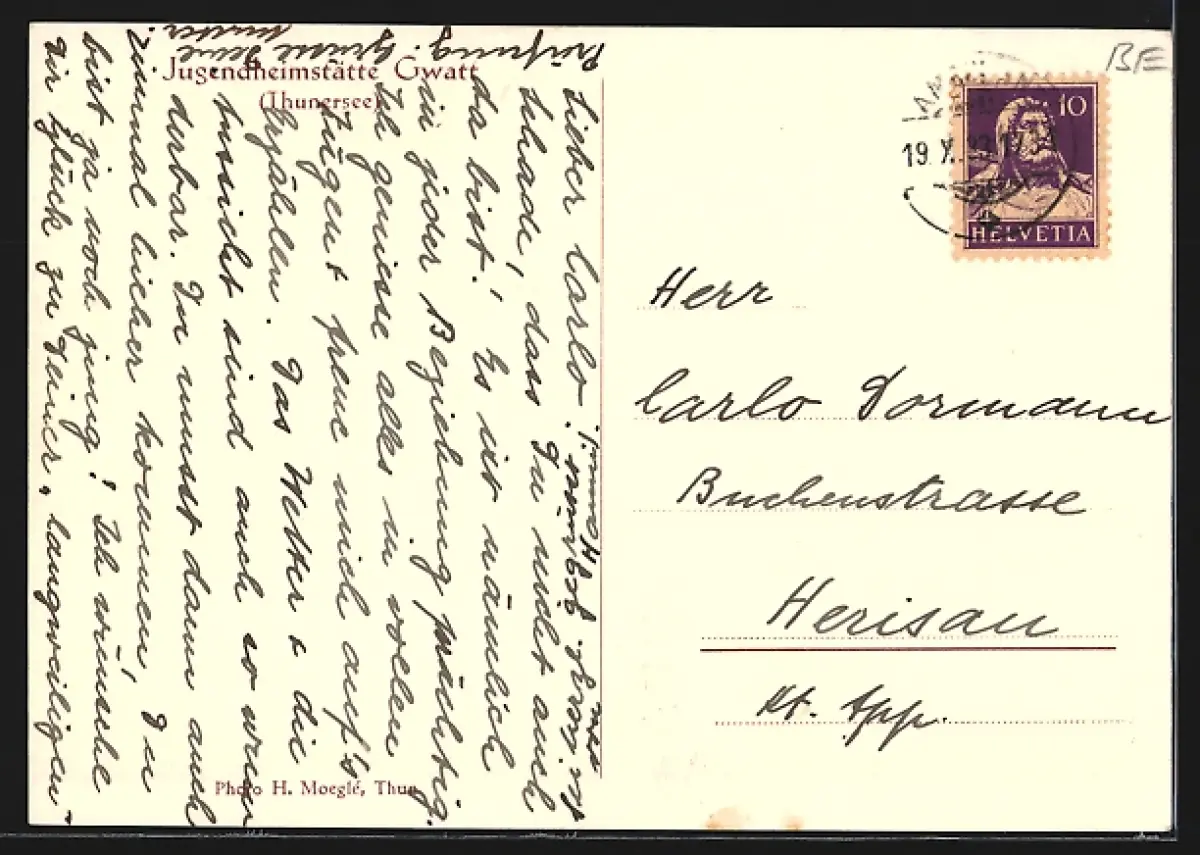 Jugendheimstätte Gwatt
(Thunersee)
Lieber Carlo!
Schade, dass Du nicht auch
da bist! Es ist nämlich
in jeder Beziehung prächtig.
Ich geniesse alles in vollen
Zügen & freue mich auf's
Erzählen. Das Wetter & die
Aussicht sind auch so wun
derbar. Du musst dann auch
einmal hieher kommen, Du
bist ja noch jung! Ich wünsche
Dir Glück zu Deiner, langweiligen"
Prüfung. Grüsse Deine
Mutter
Herzl. grüsst Hanni.
Photo H. Moeglé, Thun
BE
19. X.
10
HELVETIA
Herr
Carlo Dormann
Buchenstrasse
Herisau
Kt. App.